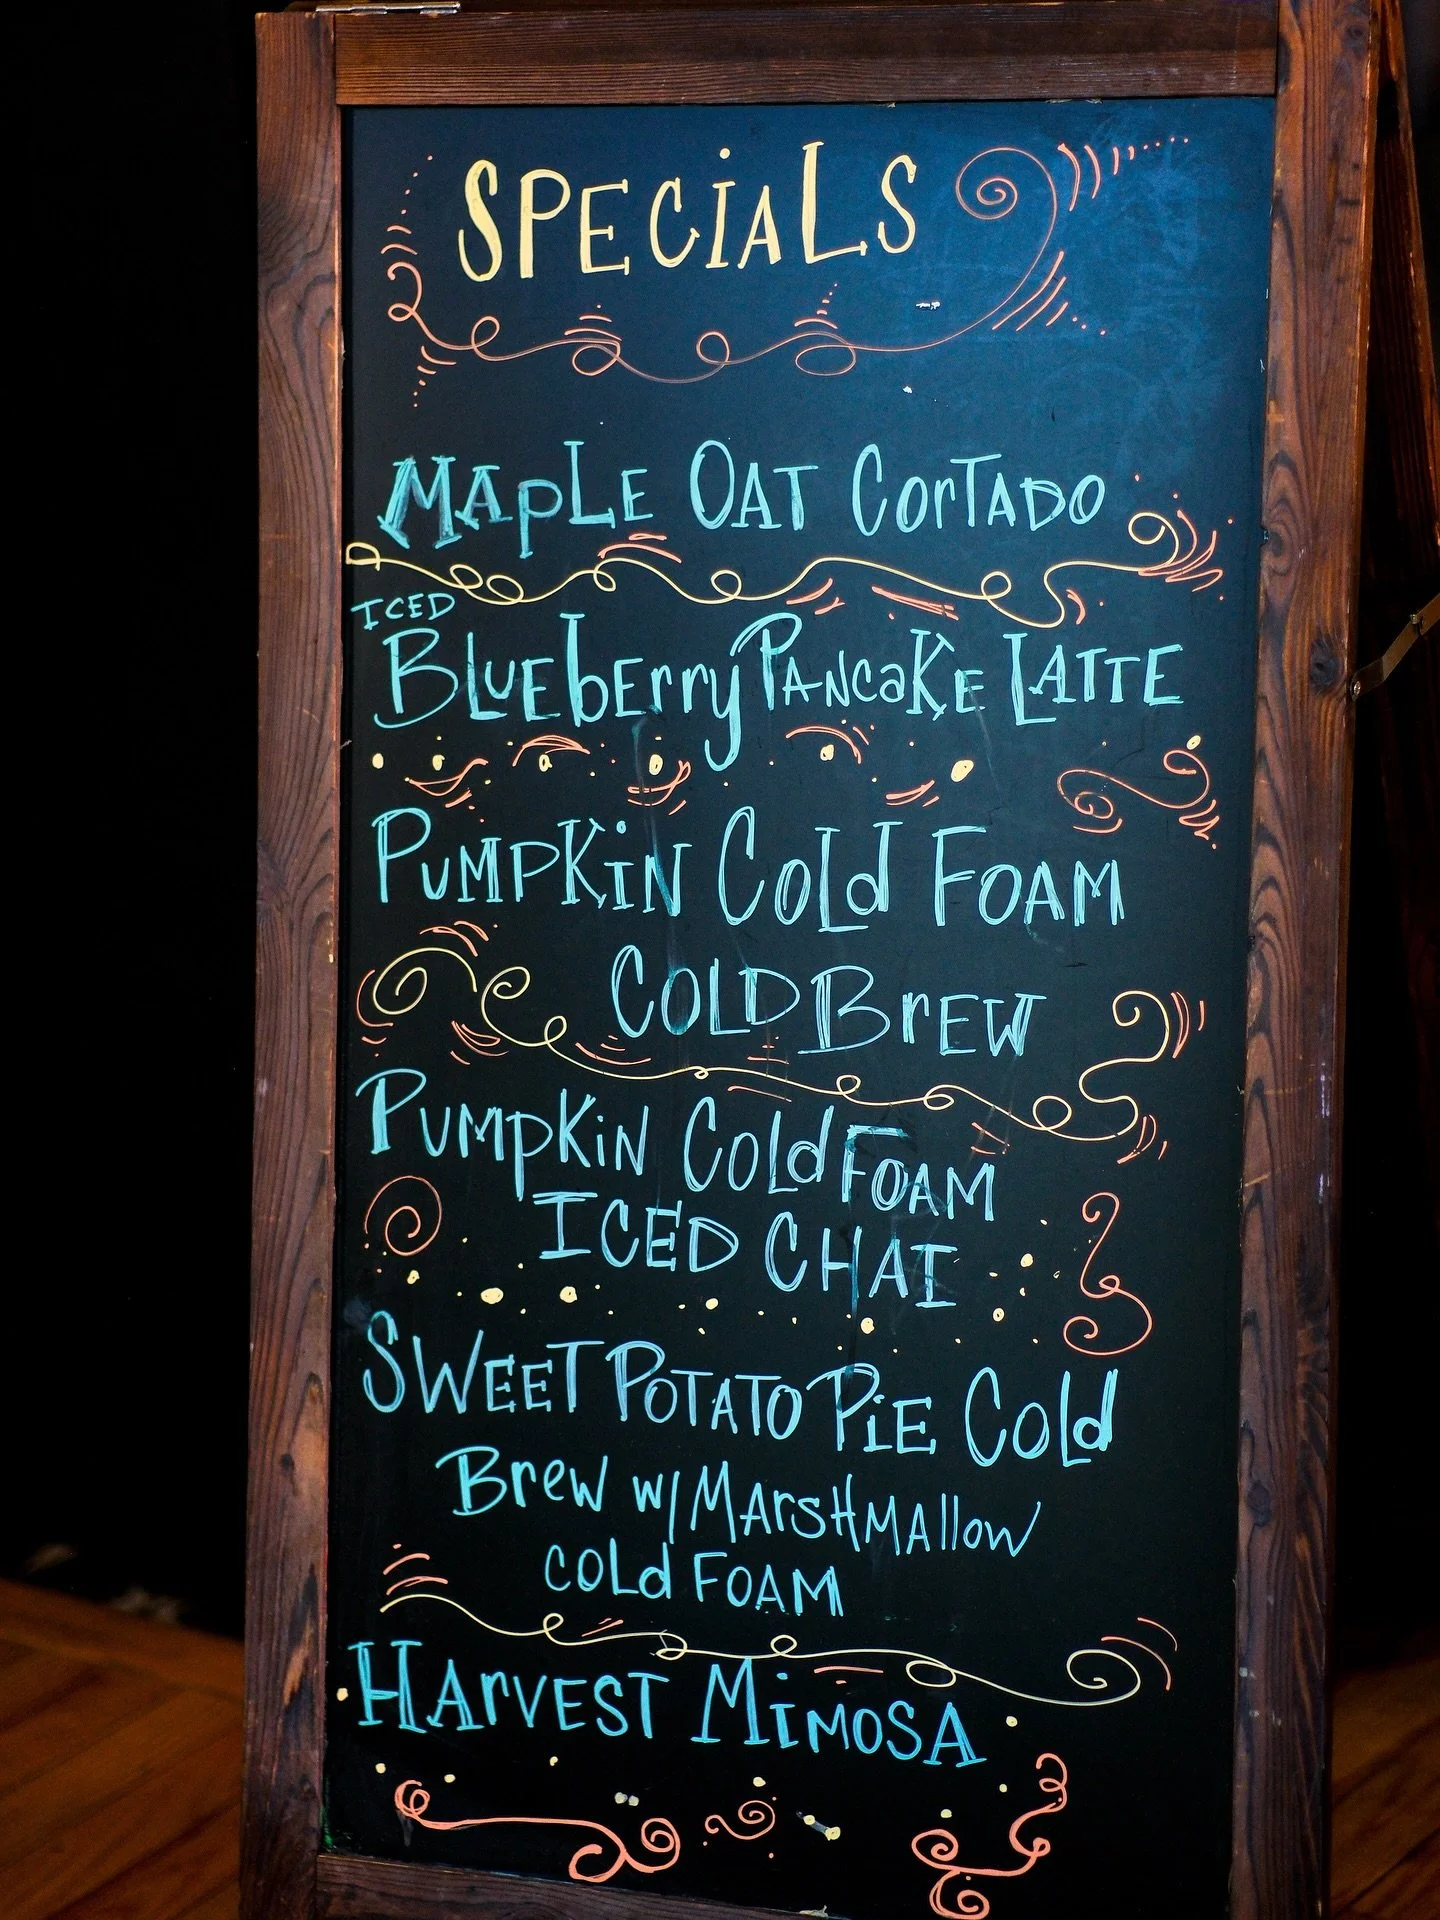 SPECiALS
MAPLE OAT CorTADO
ICED
BLUEbErry PANCaKE LATTE
PUMPKiN COLd FOAM
COLD BrEW
PUMPKiN COLd FOAM
ICED CHAI
SWEET POTATO PiE COLd
Brew w/ MArsHMAllow
COLd FOAM
HArVEST MiMOSA